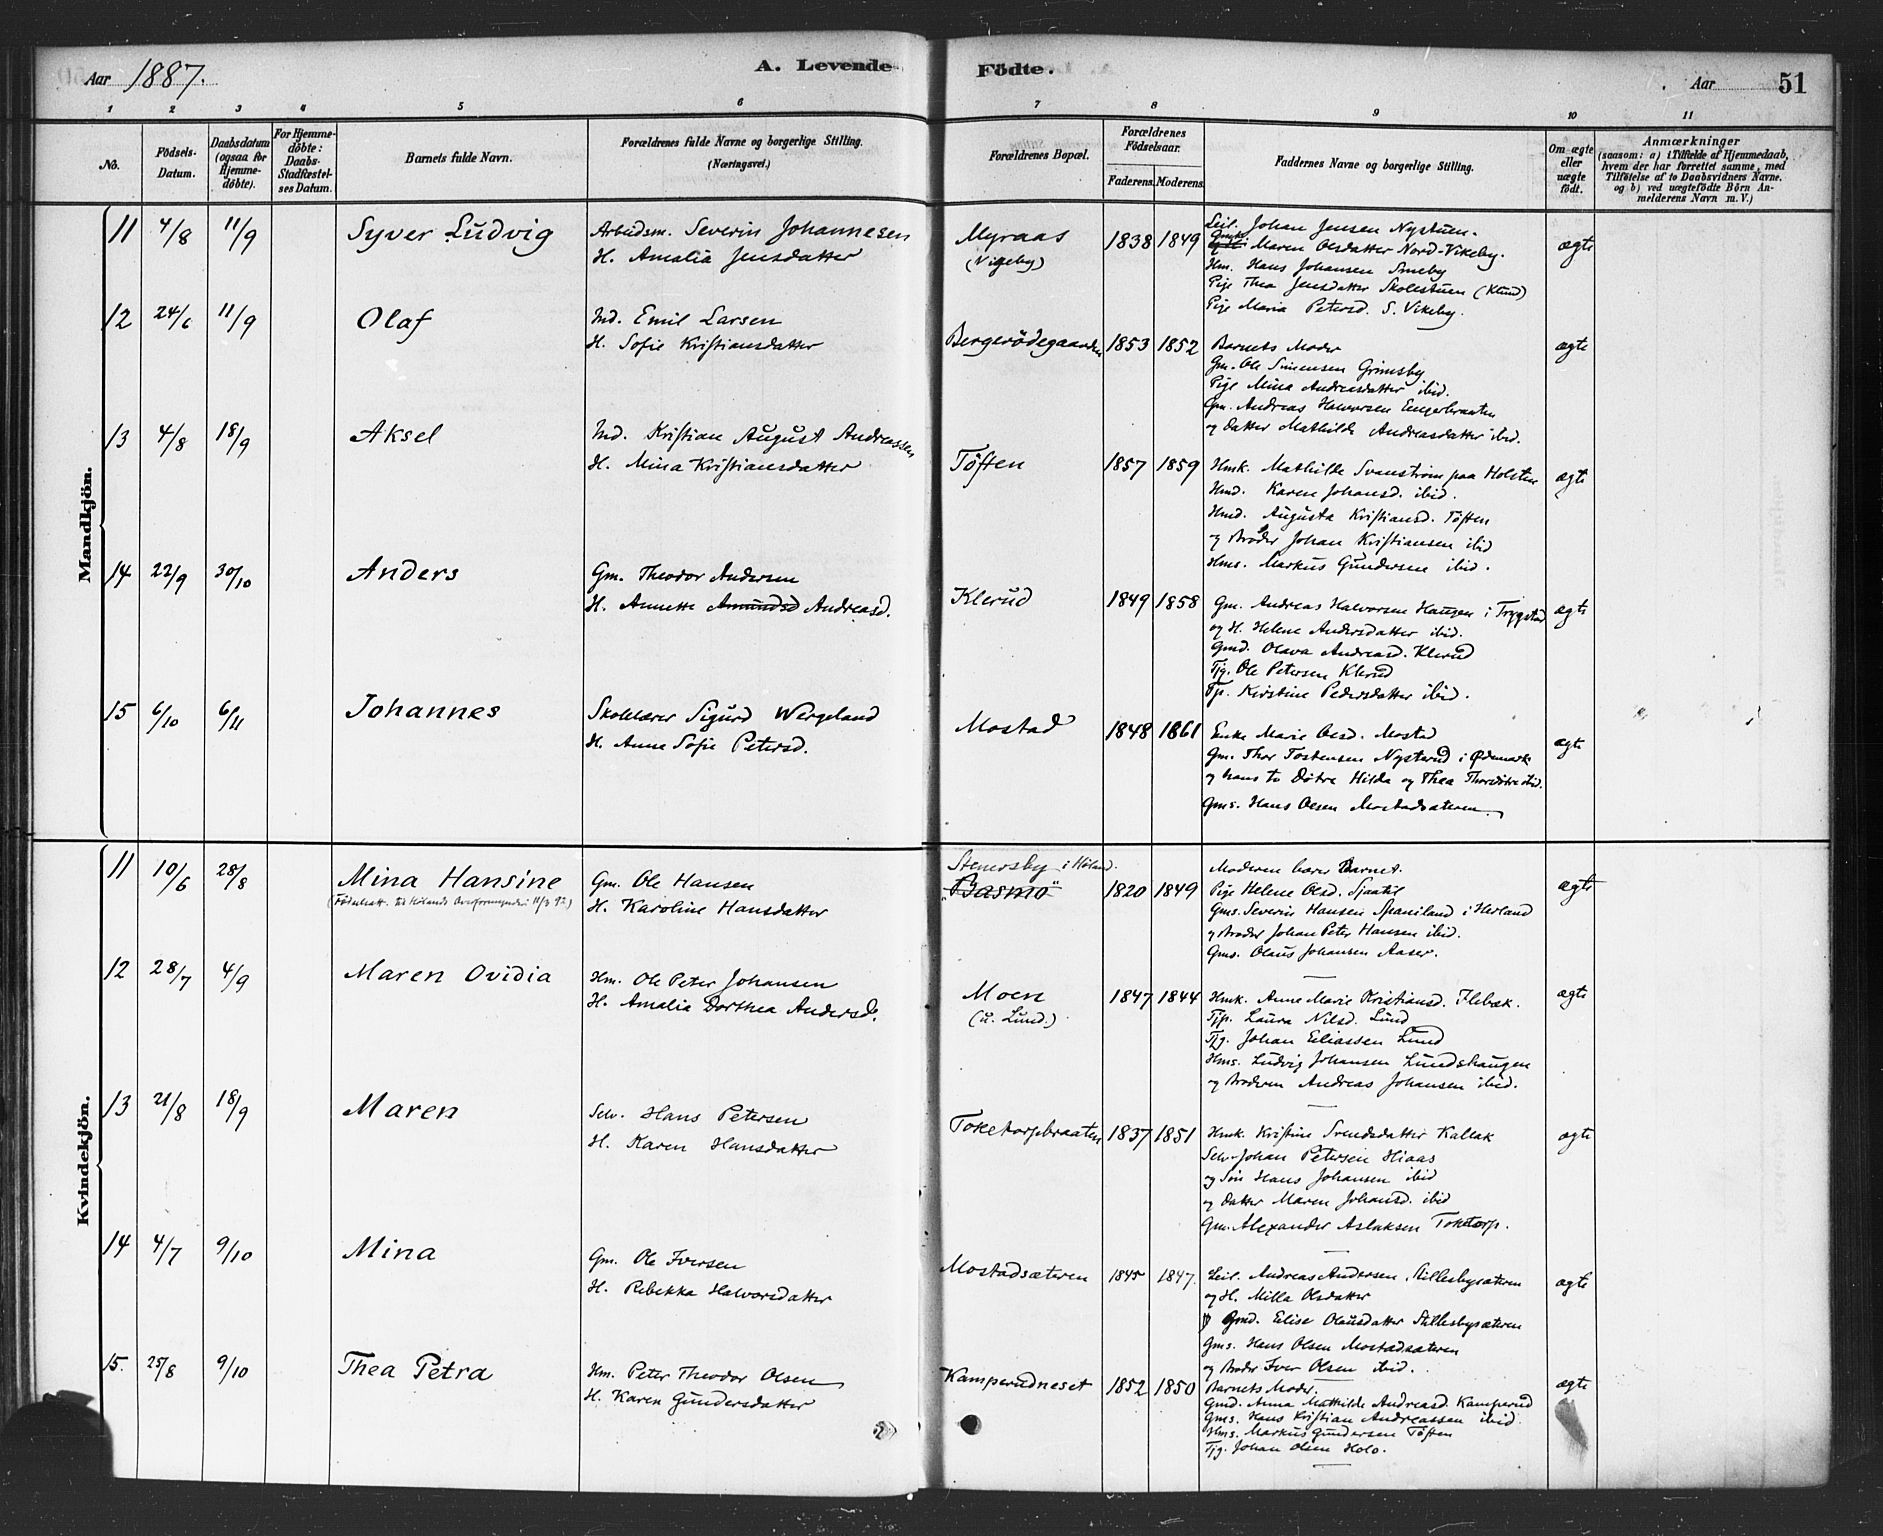 Aar 1887.
A. Levende Födte.
Aar
51
1 2 3 4 5 6 7 8 9 10 11
No.
Födsels-Datum.
Daabsdatum (ogsaa for Hjemme-döbte).
For Hjemme-döbte: Daabs-Stadfæstel-ses Datum.
Barnets fulde Navn.
Forældrenes fulde Navne og borgerlige Stilling. (Næringsvei.)
Forældrenes Bopæl.
Forældrenes Födselsaar.
Faderens. Moderens.
Faddernes Navne og borgerlige Stilling.
Om ægte eller uægte födt.
Anmærkninger
(saasom: a) i Tilfælde af Hjemmedaab, hvem der har forrettet samme, med Tilföielse af to Daabsvidners Navne, og b) ved uægtefödte Börn Anmelderens Navn m. V.)
Mandkjön.
11 4/8 11/9 Syver Ludvig
Arbeidsm. Severin Johannesen
H. Amalia Jensdatter
Myraas
(Vigeby)
1838 1849
Leil. Johan Jensen Nystuen.
Maren Olsdatter Nord-Vikeby.
Hm. Hans Johansen Smeby
Pige Thea Jensdatter Skolestuen (Klund)
Pige Maria Petersd. S. Vikeby.
ægte
12 24/6 11/9 Olaf
Ind. Emil Larsen
H. Sofie Kristiansdatter
Bergerödegaarden
1853 1852
Barnets Moder
Gm. Ole Simensen Grimsby
Pige Mina Andreasdatter ibid.
Gm. Andreas Halvorsen Engerbraaten
og Datter Mathilde Andreasdatter ibid.
ægte
13 4/8 18/9 Aksel
Ind. Kristian August Andreassen
H. Mina Kristiansdatter
Töften
1857 1859
Hmk. Mathilde Svanström paa Holsten
Hmd. Karen Johansd. ibid.
Hmd. Augusta Kristiansd. Töften
og Broder Johan Kristiansen ibid
Hms. Markus Gundersen ibid.
ægte
14 22/9 30/10 Anders
Gm. Theodor Andersen
H. Annette Amundsd Andreasd.
Klerud
1849 1858
Gm. Andreas Halvorsen Haugen i Trygstad
og H. Helene Andersdatter ibid.
Gmd. Olava Andreasd. Klerud
Tjg. Ole Petersen Klerud
Tp. Kirstine Pedersdatter ibid.
ægte
15 6/10 6/11 Johannes
Skolelærer Sigurd Wergeland
H. Anne Sofie Petersd.
Mostad
1848 1861
Enke Marie Olsd. Mostad
Gm. Thor Tostensen Nysterud i Ødemark
og hans to Døtre Hilda og Thea Thorsdøtre ibid.
Gms. Hans Olsen Mostadsæteren.
ægte
Kvindekjön.
11 10/6 28/8 Mina Hansine
(Födselsatt. til Hölands Overformynderi 11/3 92)
Gm. Ole Hansen
H. Karoline Hansdatter
Stenersby i Höland.
"Basmo"
1820 1849
Moderen bærer Barnet.
Pige Helene Olsd. Sjaatil
Gms. Severin Hansen Spaniland i Herland
og Broder Johan Peter Hansen ibid.
Gms. Olaus Johansen Aaser.
ægte
12 28/7 4/9 Maren Ovidia
Hm. Ole Peter Johansen
H. Amalia Dorthea Andersd.
Moen
(u. Lund.)
1847 1844
Hmk. Anne Marie Kristiansd. Flebæk.
Tjp. Laura Nilsd. Lund
Tjg. Johan Eliassen Lund
Hms. Ludvig Johansen Lundshaugen
og Broderen Andreas Johansen ibid.
ægte
13 21/8 18/9 Maren
Selv. Hans Petersen
H. Karen Hansdatter
Toketorpbraaten
1837 1851
Hmk. Kristine Svendsdatter Kallak
Selv. Johan Petersen Hiaas
og Sön Hans Johansen ibid
og Datter Maren Johansd. ibid
Gm. Alexander Aslaksen Toketorp.
ægte
14 4/7 9/10 Mina
Gm. Ole Iversen
H. Rebekka Halvorsdatter
Mostadsæteren
1845 1847.
Leil. Andreas Andersen Stillesbysæteren
og H. Milla Olsdatter
Gmd. Elise Olausdatter Stillesbysæteren
Gms. Hans Olsen Mostadsæteren
og Broder Iver Olsen ibid.
ægte
15. 25/8 9/10 Thea Petra
Hm. Peter Theodor Olsen
H. Karen Gundersdatter
Kamperudneset
1852 1850
Barnets Moder.
Gmd. Anna Mathilde Andreasd. Kamperud
Gms. Hans Kristian Andreassen ibid
Hms. Markus Gundersen Töften
Tjg. Johan Olsen Holo.
ægte